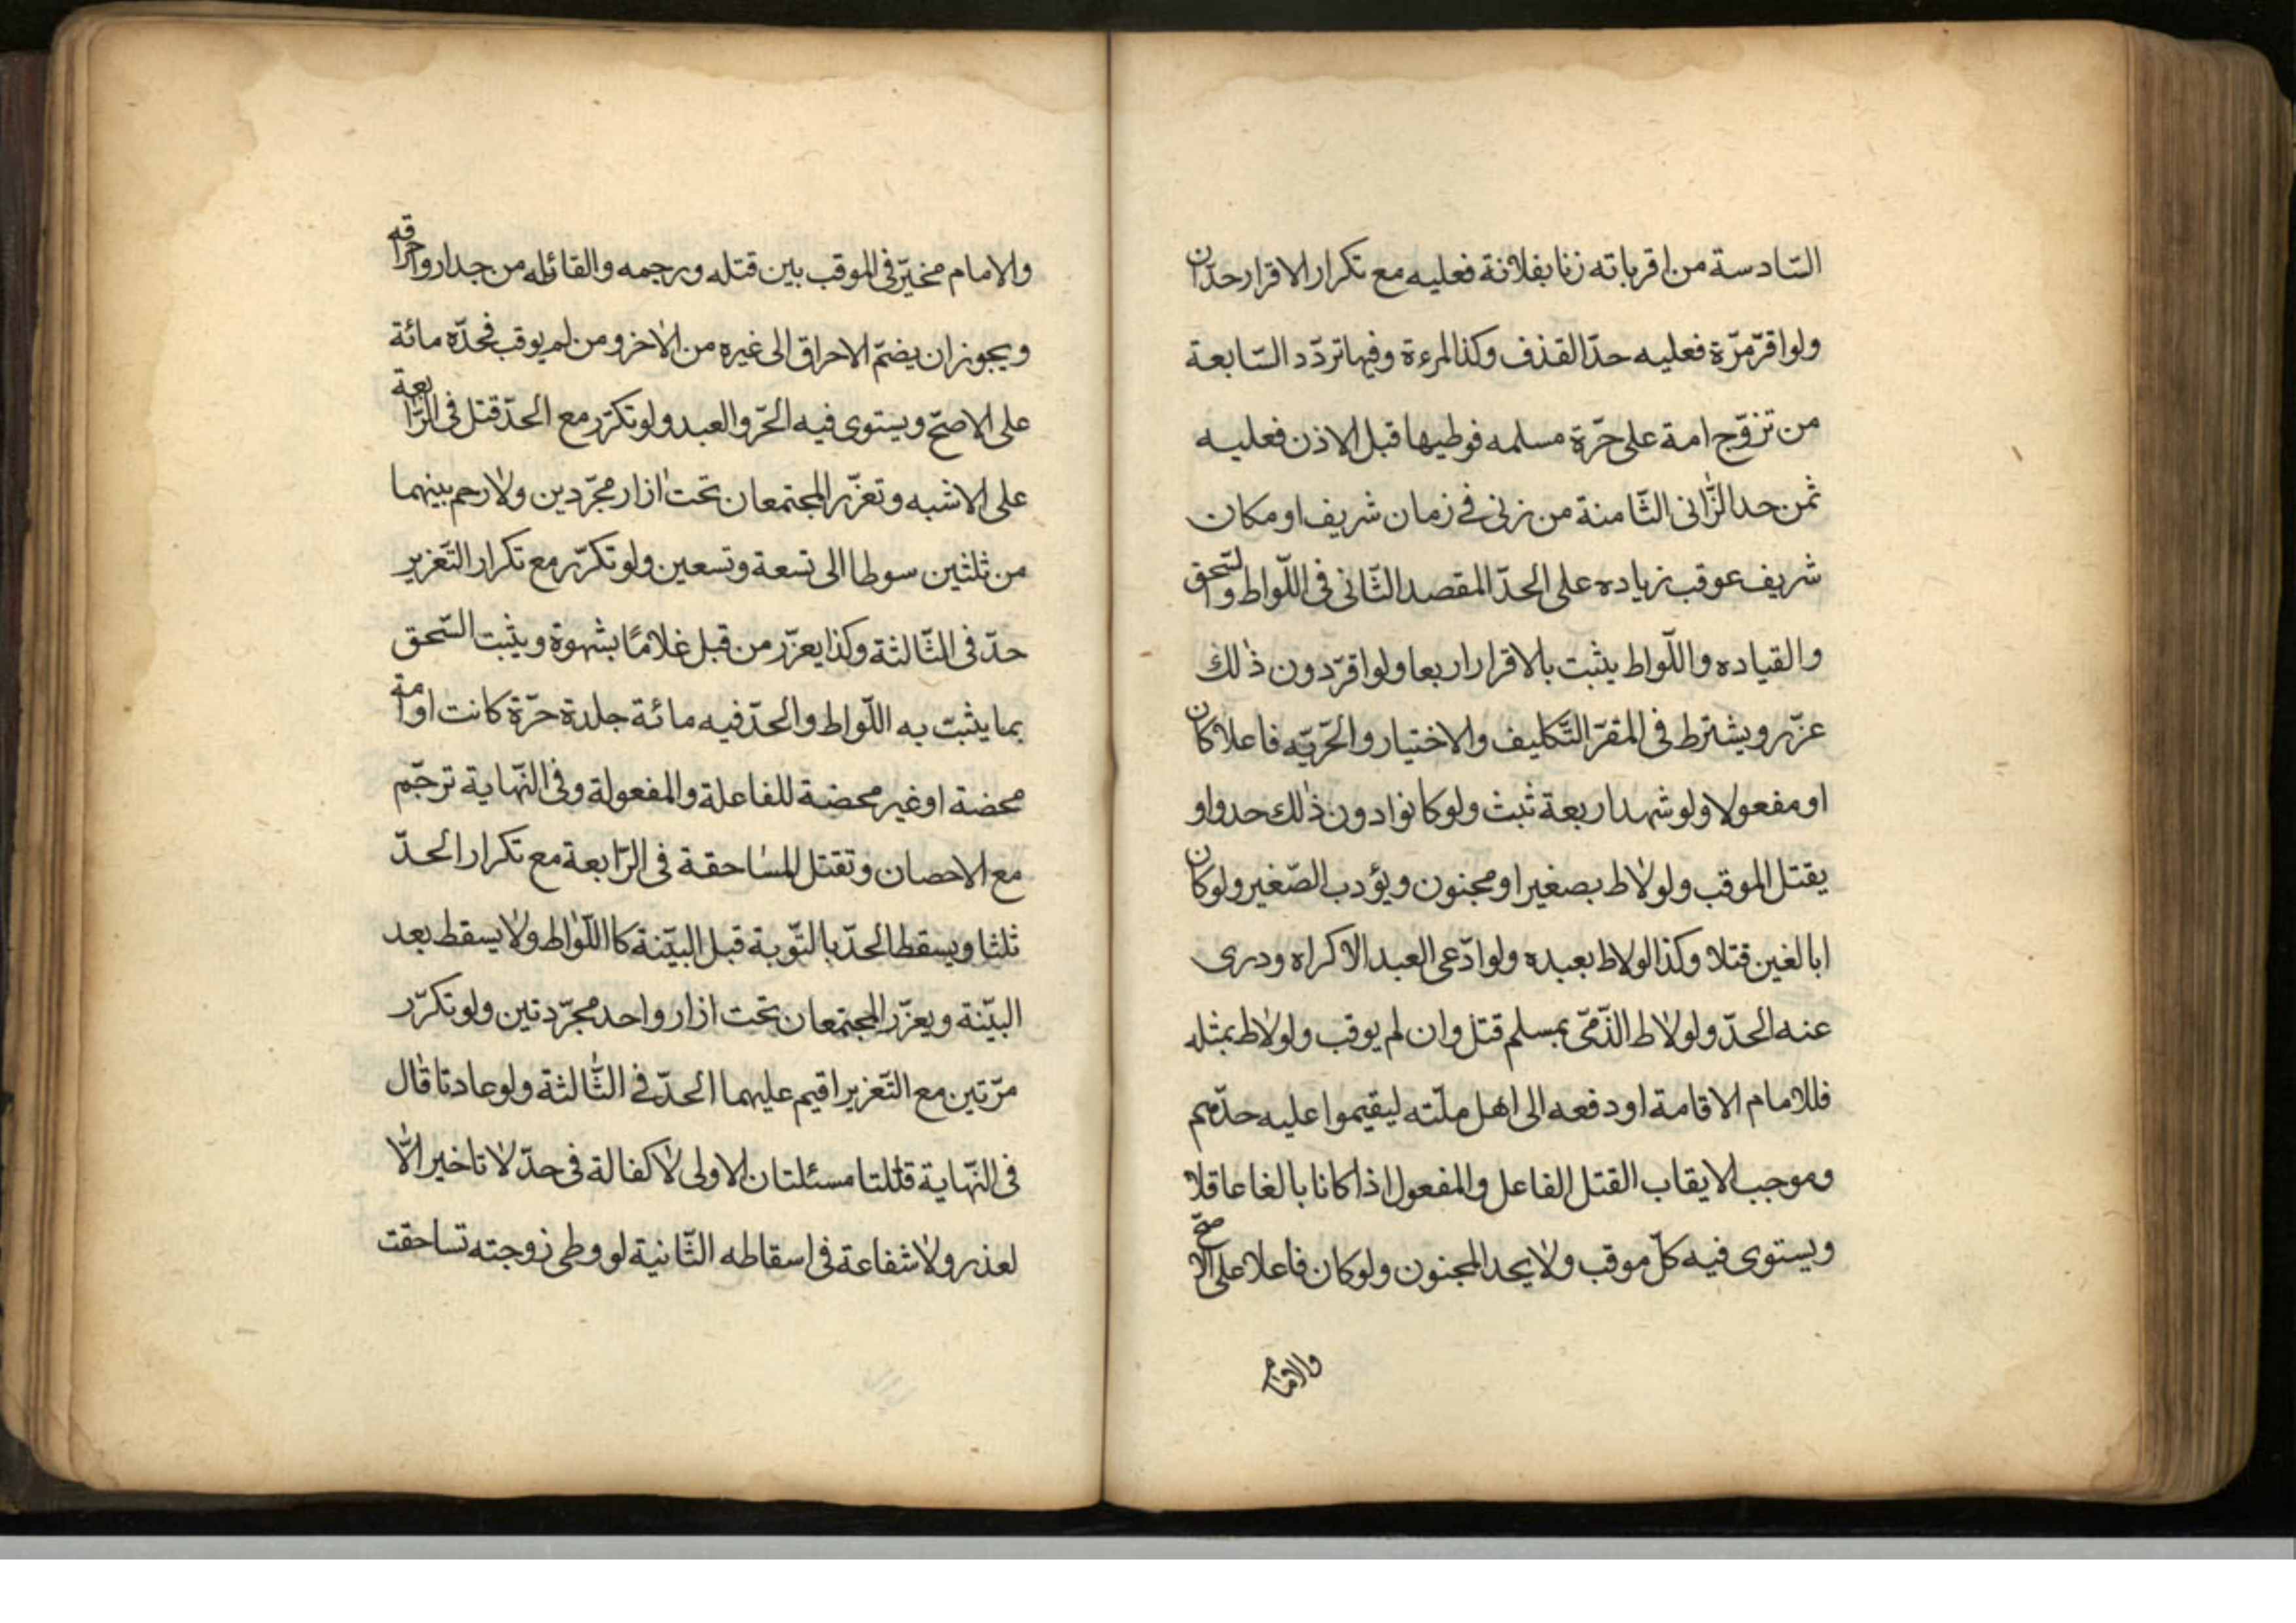 السّادسة من اقر باته زنا بفلانة فعليه مع تكرار الاقرار حدّان
ولو اقرّ مرّة فعليه حدّ القذف وكذا لمرءة وفيها تردّد السّابعة
من تزوّج امة على حرّة مسلمه فوطيها قبل الاذن فعليه
ثمن حد الزّانى الثّامنة من زنى فى زمان شريف او مكان
شريف عوقب زياده على الحدّ المقصد الثّانى فى اللّواط والسّحق
والقياده واللّواط يثبت بالاقرار اربعا ولو اقرّ دون ذلك
عزّر ويشترط فى المقرّ التّكليف والاختيار والحرّيّه فاعلا كان
او مفعولا ولو شهد اربعة ثبت ولو كانوا دون ذلك حدوا و
يقتل الموقب ولو لاط بصغير او مجنون ويؤدب الصّغير ولو كان
ابالغين قتلا وكذا لو لاط بعبده ولو ادّعى العبد الاكراه ودرى
عنه الحدّ ولو لاط الذّمّى بمسلم قتل وان لم يوقب ولو لاط بمثله
فللامام الاقامة او دفعه الى اهل ملّته ليقيموا عليه حدّهم
وموجب الايقاب القتل الفاعل والمفعول اذا كانا بالغا عاقلا
ويستوى فيه كلّ موقب ولا يحد المجنون ولو كان فاعلا على الاصحّ
والامام
والامام مخيّر فى الموقب بين قتله ورجمه والقائله من جدار واحراقه
ويجوز ان يضمّ الاحراق الى غيره من الاخر ومن لم يوقب فحدّه مائة
على الاصحّ ويستوى فيه الحرّ والعبد ولو تكرّر مع الحدّ قتل فى الرّابعة
على الاشبه وتعزّر المجتمعان تحت ازار مجرّدين ولا رحم بينهما
من ثلثين سوطا الى تسعة وتسعين ولو تكرّر مع تكرار التّعزير
حدّ فى الثّالثة وكذا يعزّر من قبل غلامًا بشهوة ويثبت السّحق
بما يثبت به اللّواط والحدّ فيه مائة جلدة حرّة كانت او امة
محضنة او غير محضنة للفاعلة والمفعولة وفى النّهاية ترجّم
مع الاحصان وتقتل المساحقة فى الرّابعة مع تكرار الحدّ
ثلثا ويسقط الحدّ بالتّوبة قبل البيّنة كا اللّواط ولا يسقط بعد
البيّنة ويعزّر المجتمعان تحت ازار واحد مجرّدتين ولو تكرّر
مرّتين مع التّعزير اقيم عليهما الحدّ فى الثّالثة ولو عادتا قال
فى النّهاية قتلتا مسئلتان الاولى لا كفالة فى حدّ لا تاخير الّا
لعذر ولا شفاعة فى اسقاطه الثّانية لو وطى زوجته تساحقت